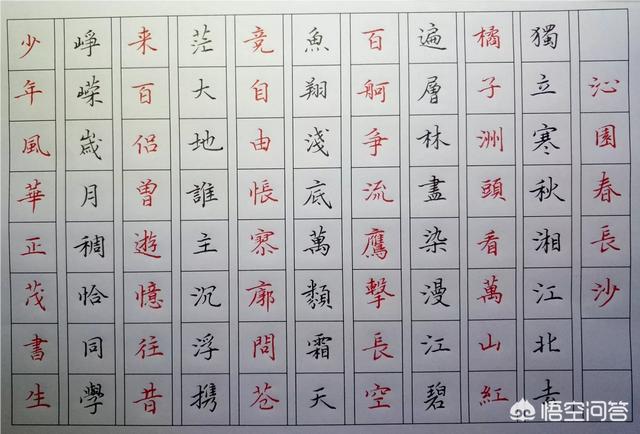 沁園春長沙
獨立寒秋湘江北去
橘子洲頭看萬山紅
遍層林盡染漫江碧
百舸爭流鷹擊長空
魚翔淺底萬類霜天
竞自由悵寥廓問苍
茫大地誰主沉浮携
来百侣曾遊憶往昔
崢嶸嵗月稠恰同學
少年風華正茂書生
悟空问答